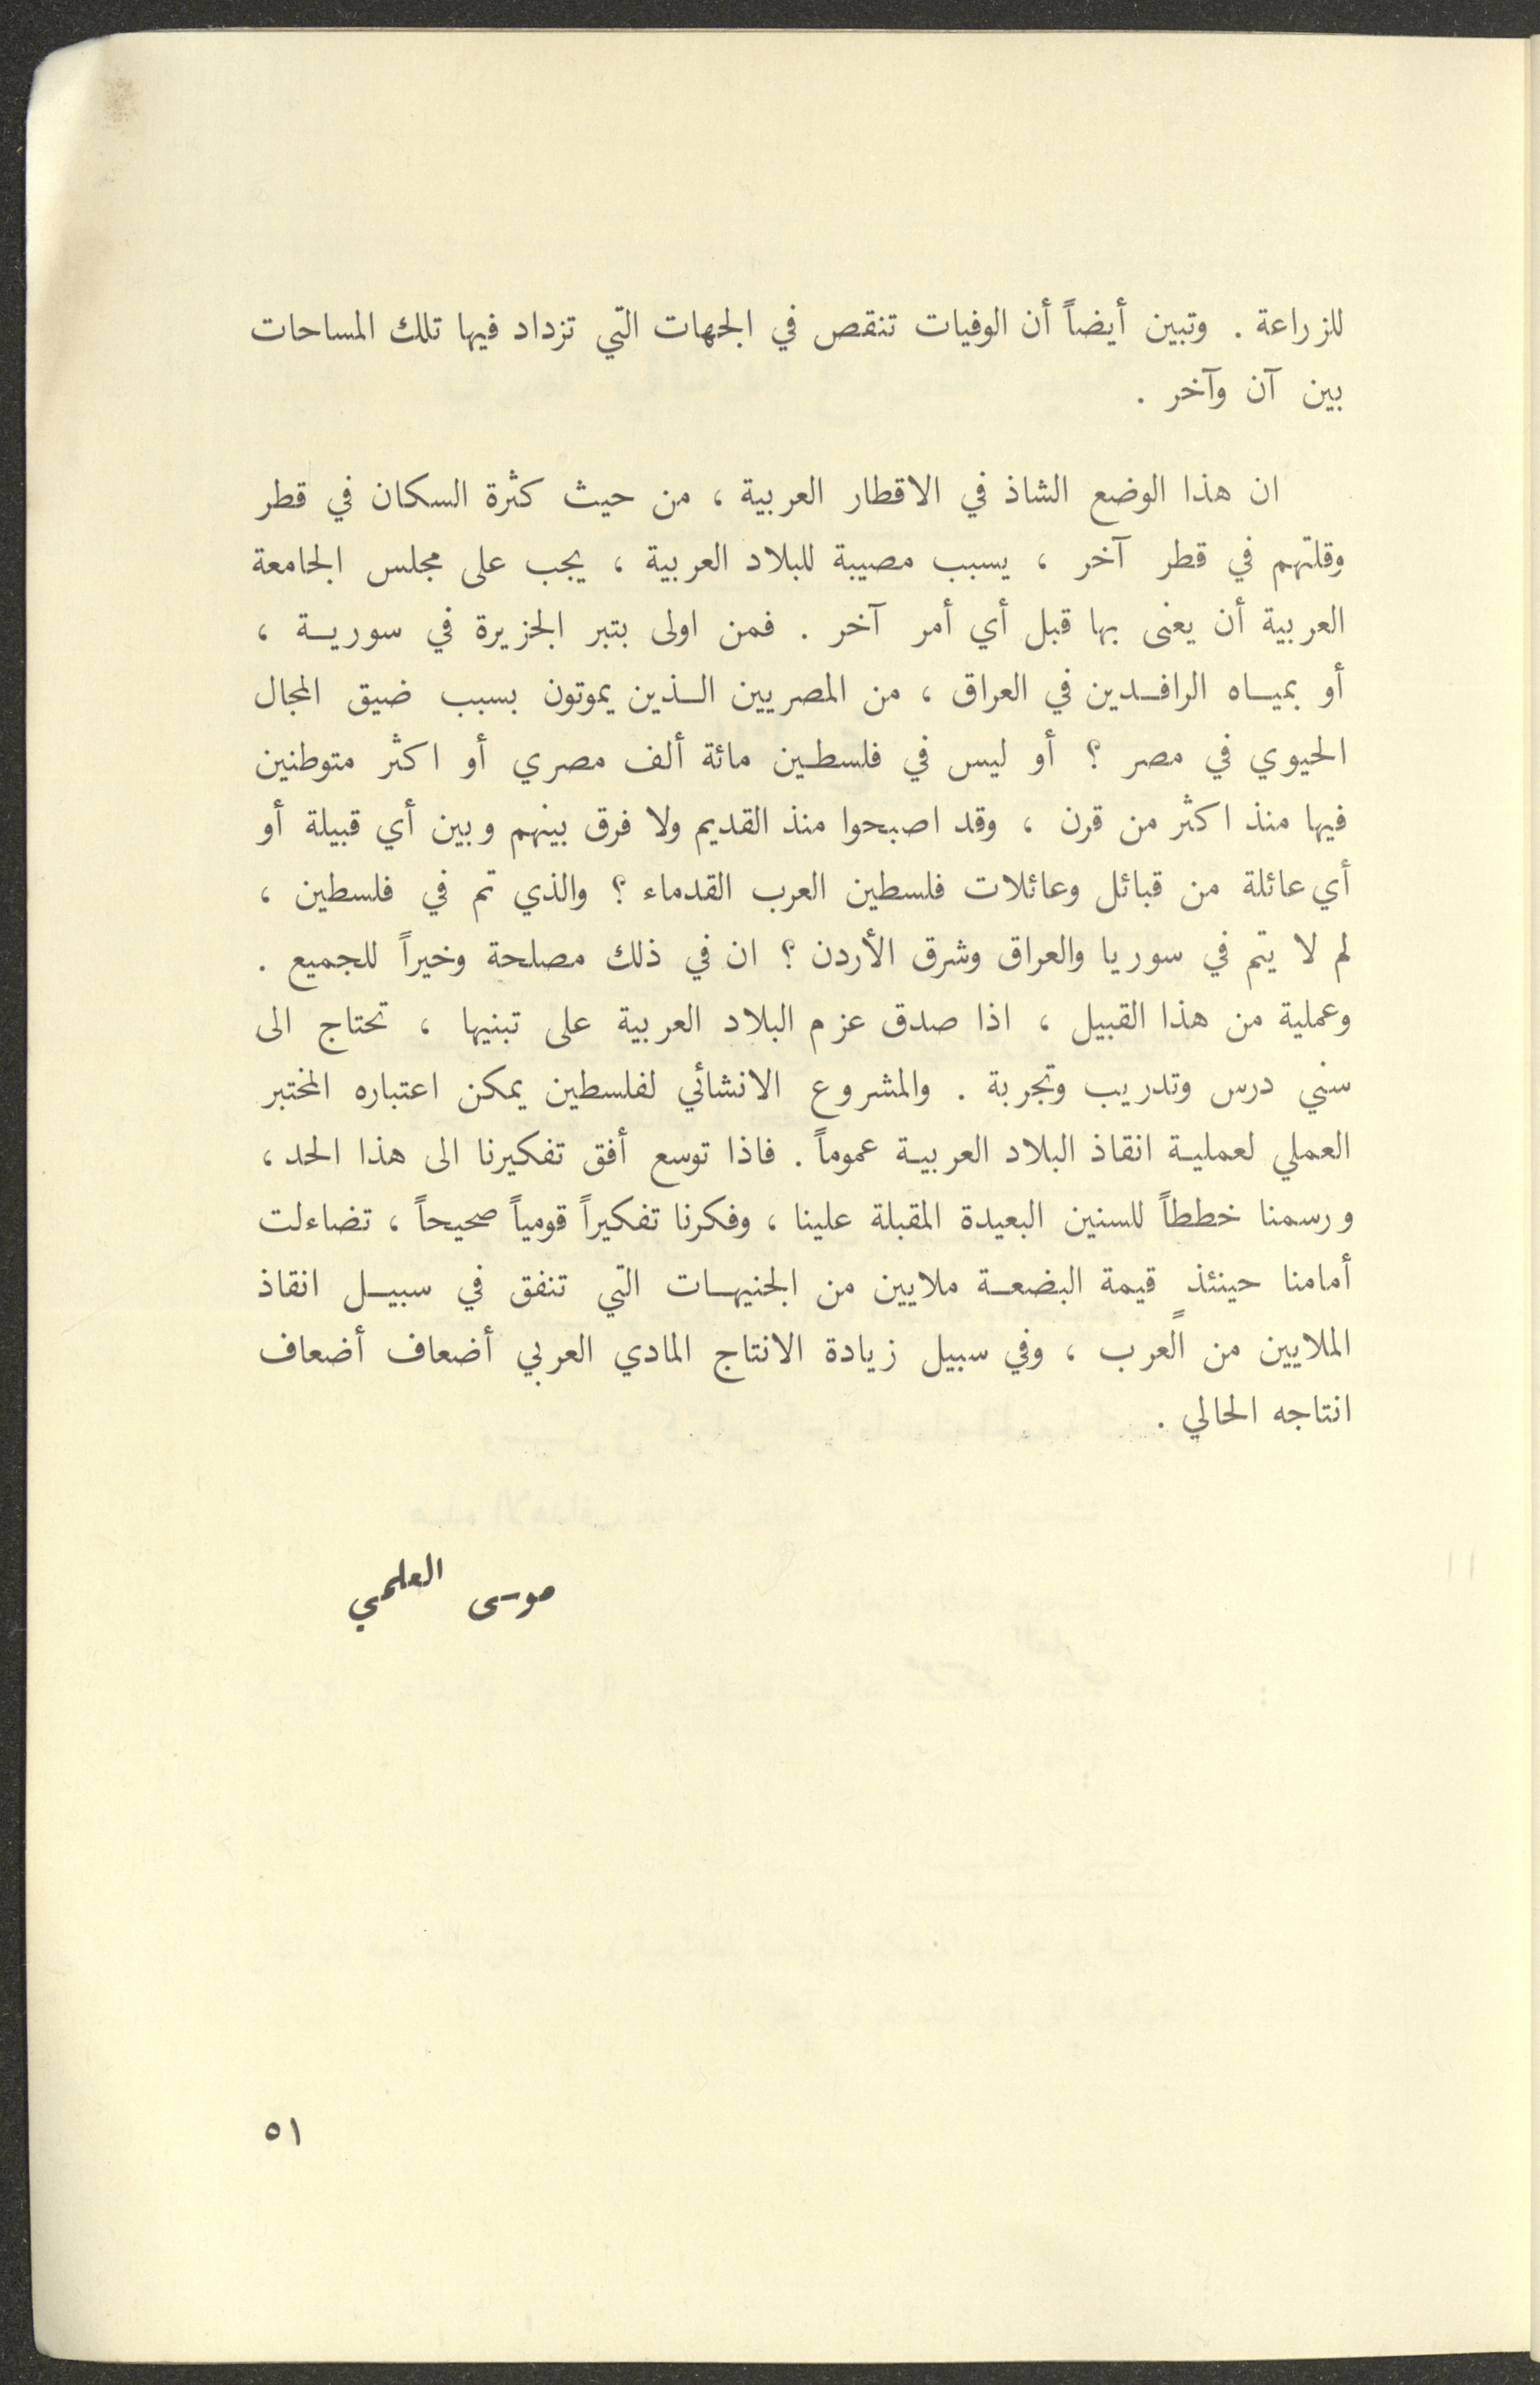 للزراعة . وتبين أيضاً أن الوفيات تنقص في الجهات التي تزداد فيها تلك المساحات
بين آن وآخر .
ان هذا الوضع الشاذ في الاقطار العربية ، من حيث كثرة السكان في قطر
وقلتهم في قطر آخر ، يسبب مصيبة للبلاد العربية ، يجب على مجلس الجامعة
العربية أن يعنى بها قبل أي أمر آخر . فمن اولى بتبر الجزيرة في سورية ،
أو بمياه الرافدين في العراق ، من المصريين الذين يموتون بسبب ضيق المجال
الحيوي في مصر ؟ أو ليس في فلسطين مائة ألف مصري أو اكثر متوطنين
فيها منذ اكثر من قرن ، وقد اصبحوا منذ القديم ولا فرق بينهم وبين أي قبيلة أو
أي عائلة من قبائل وعائلات فلسطين العرب القدماء ؟ والذي تم في فلسطين ،
لم لا يتم في سوريا والعراق وشرق الأردن ؟ ان في ذلك مصلحة وخيراً للجميع .
وعملية من هذا القبيل ، اذا صدق عزم البلاد العربية على تبنيها ، تحتاج الى
سني درس وتدريب وتجربة . والمشروع الانشائي لفلسطين يمكن اعتباره المختبر
العملي لعملية انقاذ البلاد العربية عموماً . فاذا توسع أفق تفكيرنا الى هذا الحد ،
ورسمنا خططاً للسنين البعيدة المقبلة علينا ، وفكرنا تفكيراً قومياً صحيحاً ، تضاءلت
أمامنا حينئذٍ قيمة البضعة ملايين من الجنيهات التي تنفق في سبيل انقاذ
الملايين من العرب ، وفي سبيل زيادة الانتاج المادي العربي أضعاف أضعاف
انتاجه الحالي .
موسى العلمي
٥١